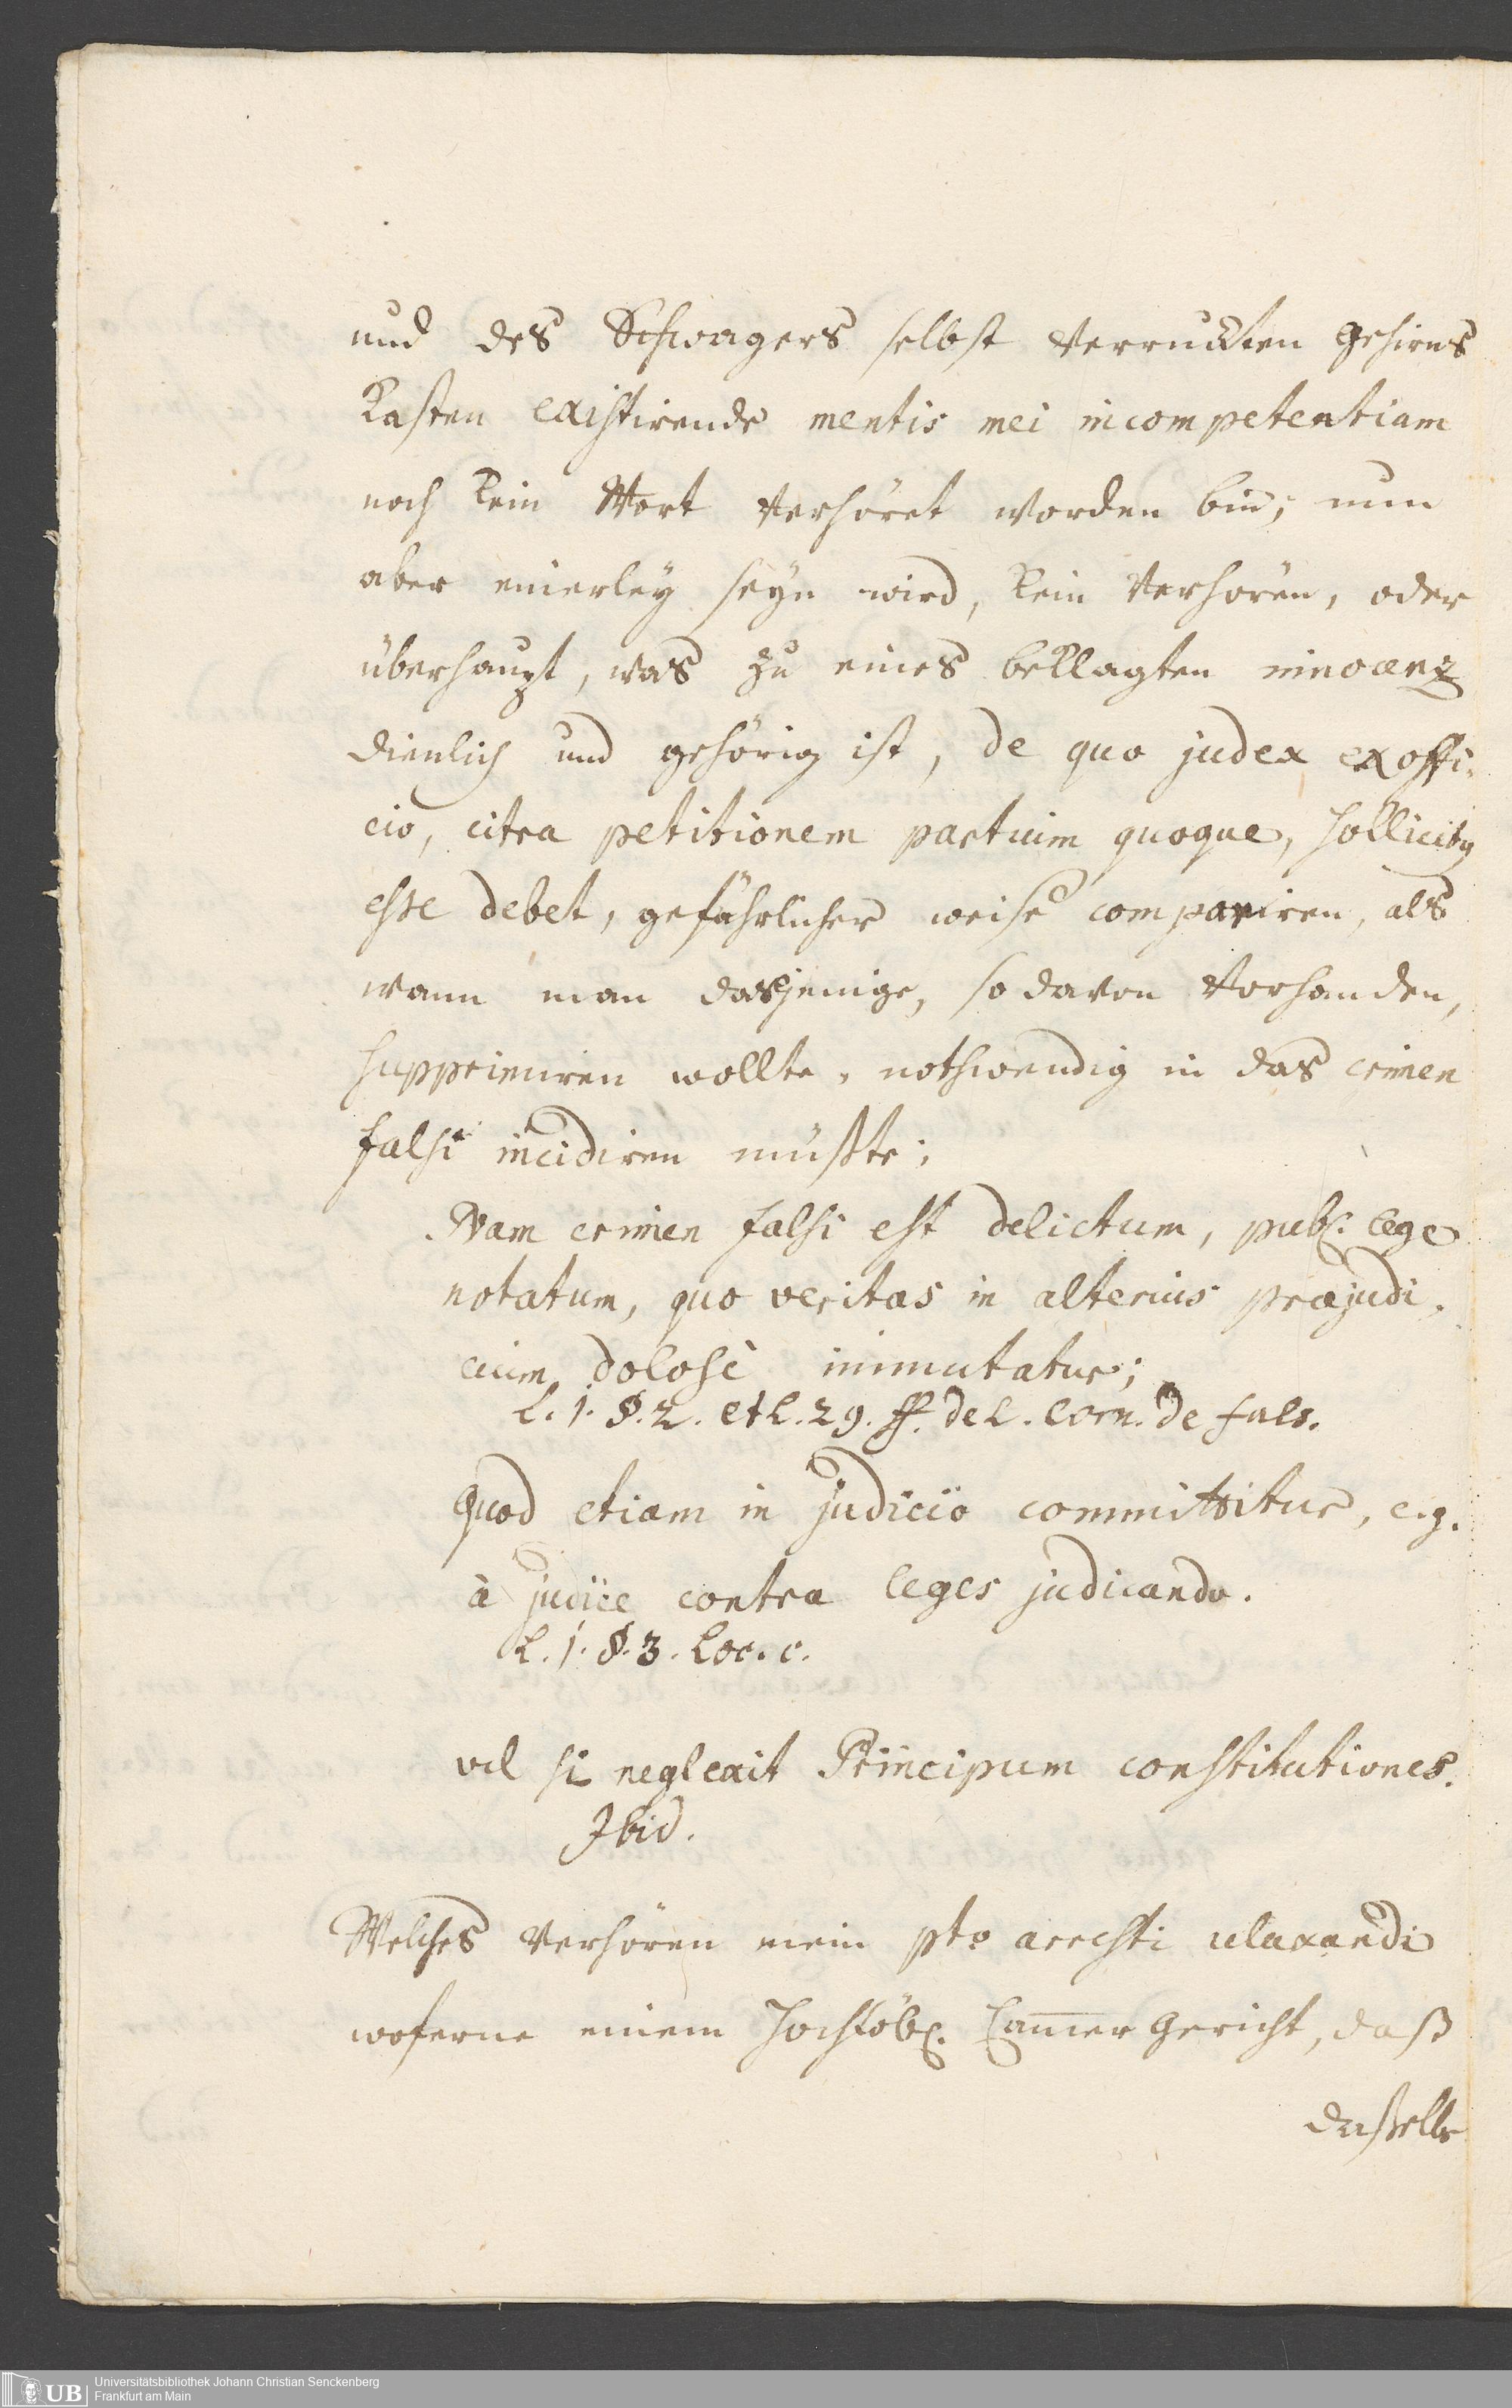 und des Schwagers selbst verruckten Gehirns
Kasten existirende mentis mei incompetentiam
noch kein Wort verhöret worden bin; nun
aber einerley seyn wird, kein Verhören, oder
überhaupt, was zu eines beklagten
dienlich und gehörig ist, de quo judex ex offi-
cio, citra petitionem partium quoque, sollicitus
esse debet, gefährlicher weise compariren, als
wann man dasjenige, so davon vorhanden,
supprimiren wollte, nothwendig in das crimen
falsi incidiren müßte;
Nam crimen falsi est delictum, publ. lege
notatum, quo veritas in alterius præjudi-
cium dolosè immutatur;
L. 1. §. 2. et L. 29. ff. de L. Corn. de fals.
Quod etiam in judicio committitur, e.g.
à judice contra leges judicando.
L. 1. §. 3. Loc. c.
vel si neglexit Principum constitutiones.
Ibid.
Welches Verhören mein pto arresti relaxandi
woferne einem Hochlöbl. Cammer Gericht, daß
daßelbe
UB Universitätsbibliothek Johann Christian Senckenberg
Frankfurt am Main